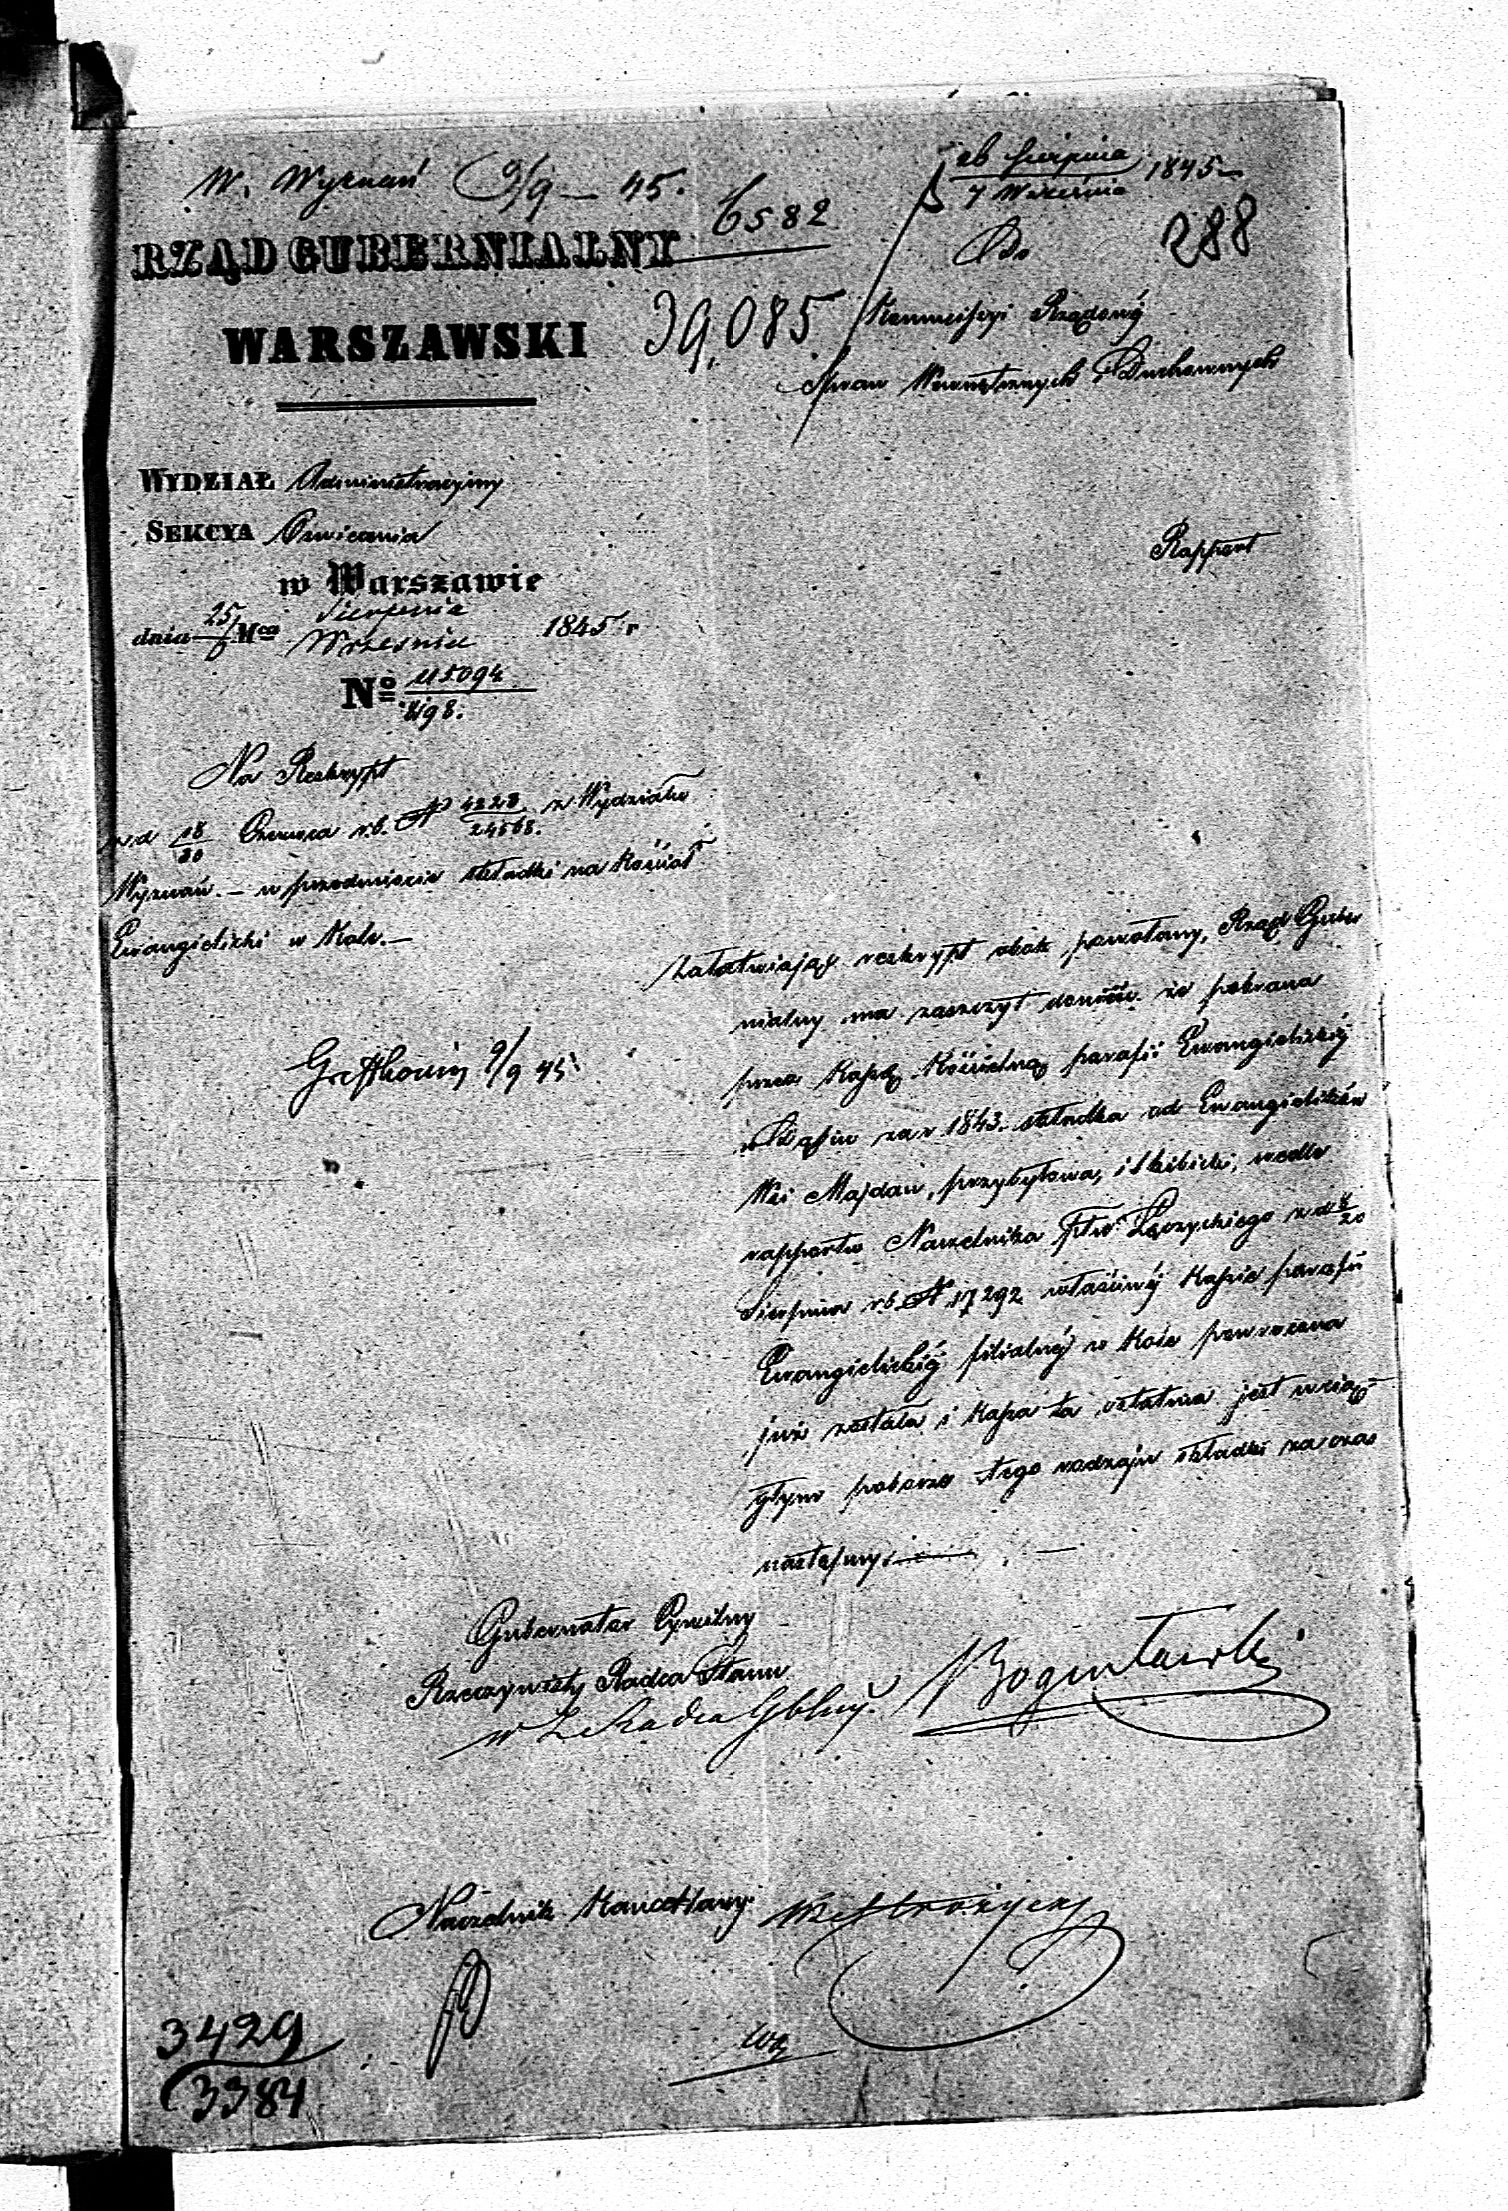 W. Wyznań 9/9 – 45.
6582
26 Sierpnia 1845
7 Września
288
RZĄD GUBERNIALNY
WARSZAWSKI
39,085
Do
Kommissyi Rządowéj
Spraw Wewnętrznych i Duchownych
WYDZIAŁ Administracyjny
SEKCYA Oswiecenia
w Warszawie
dnia 25/6 Mca Sierpnia
Wrzesnia 1845 r
No. 115094
Rapport
Na Reskrypt
z d 18/30 Czerwca r.b. N 4228/24568. z Wydziału
Wyznań. – w przedmiocie składki na Kościoł
Ewangielicki w Kole. –
Załatwiając reskrypt obok powołany, Rząd Guber
nialny ma zaszczyt donieść że pobrana
przez Kassę Kościelną parafii Ewangielickiéj
w Dąbiu za r. 1843. składka od Ewangielików
Wsi Majdan, przybyłowa, i Skibicki, wedle
rapportu Naczelnika Ptu Łęczyckiego z d 8/20
Sierpnia r.b. N 17292 właściwéj Kassie parafii
Ewangielickiéj filialnéj w Kole powrocona
już została i Kassa ta ostatnia jest w ciąg-
głym poborze tego rodzaju składki za czas
następny.
9/9 45
Gubernator Cywilny
Rzeczywisty Radca Stanu
w Z Radca Gblny.
Bogusławski
Naczelnik Kancellaryi
3429
3384